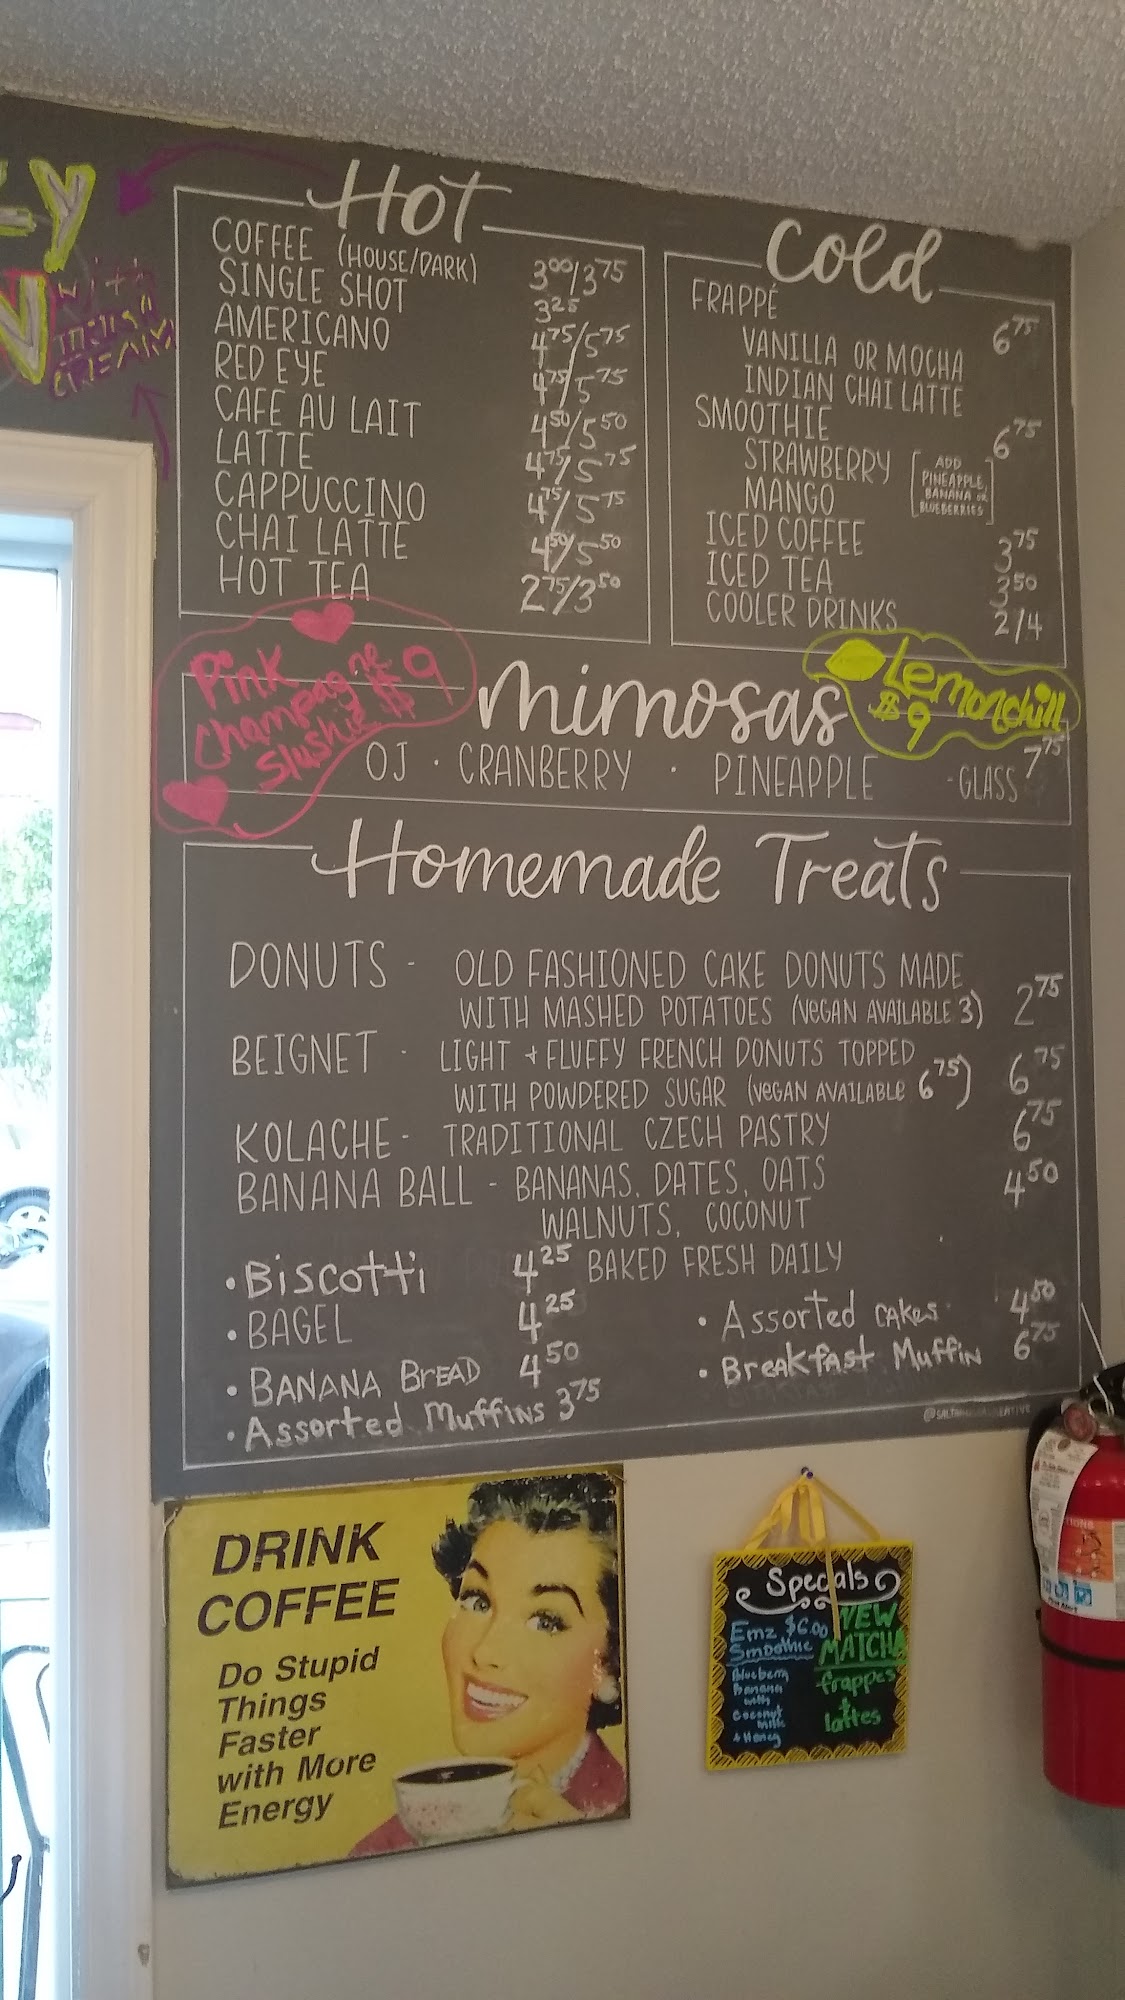 Hot
COFFEE (HOUSE/DARK) 3.00/3.75
SINGLE SHOT 3.25
AMERICANO 4.75/5.75
RED EYE 4.75/5.75
CAFE AU LAIT 4.50/5.50
LATTE 4.75/5.75
CAPPUCCINO 4.75/5.75
CHAI LATTE 4.50/5.50
HOT TEA 2.75/3.50
with
IRISH
CREAM
Cold
FRAPPÉ 6.75
VANILLA OR MOCHA
INDIAN CHAI LATTE
SMOOTHIE 6.75
STRAWBERRY
MANGO
ADD
PINEAPPLE,
BANANA OR
BLUEBERRIES
ICED COFFEE 3.75
ICED TEA 3.50
COOLER DRINKS 2/4
Pink
Champagne
Slushie $9
mimosas
Lemonchill
$9
OJ · CRANBERRY · PINEAPPLE - GLASS 7.75
Homemade Treats
DONUTS - OLD FASHIONED CAKE DONUTS MADE
WITH MASHED POTATOES (VEGAN AVAILABLE 3) 2.75
BEIGNET - LIGHT + FLUFFY FRENCH DONUTS TOPPED
WITH POWDERED SUGAR (VEGAN AVAILABLE 6.75) 6.75
KOLACHE - TRADITIONAL CZECH PASTRY 6.75
BANANA BALL - BANANAS, DATES, OATS 4.50
WALNUTS, COCONUT
BAKED FRESH DAILY
• Biscotti 4.25
• BAGEL 4.25
• BANANA BREAD 4.50
• Assorted Muffins 3.75
• Assorted cakes 4.50
• Breakfast Muffin 6.75
DRINK
COFFEE
Do Stupid
Things
Faster
with More
Energy
Specials
Emz $6.00
Smoothie
Blueberry
Banana
with
Coconut
milk
+ Honey
NEW
MATCHA
frappes
+
lattes